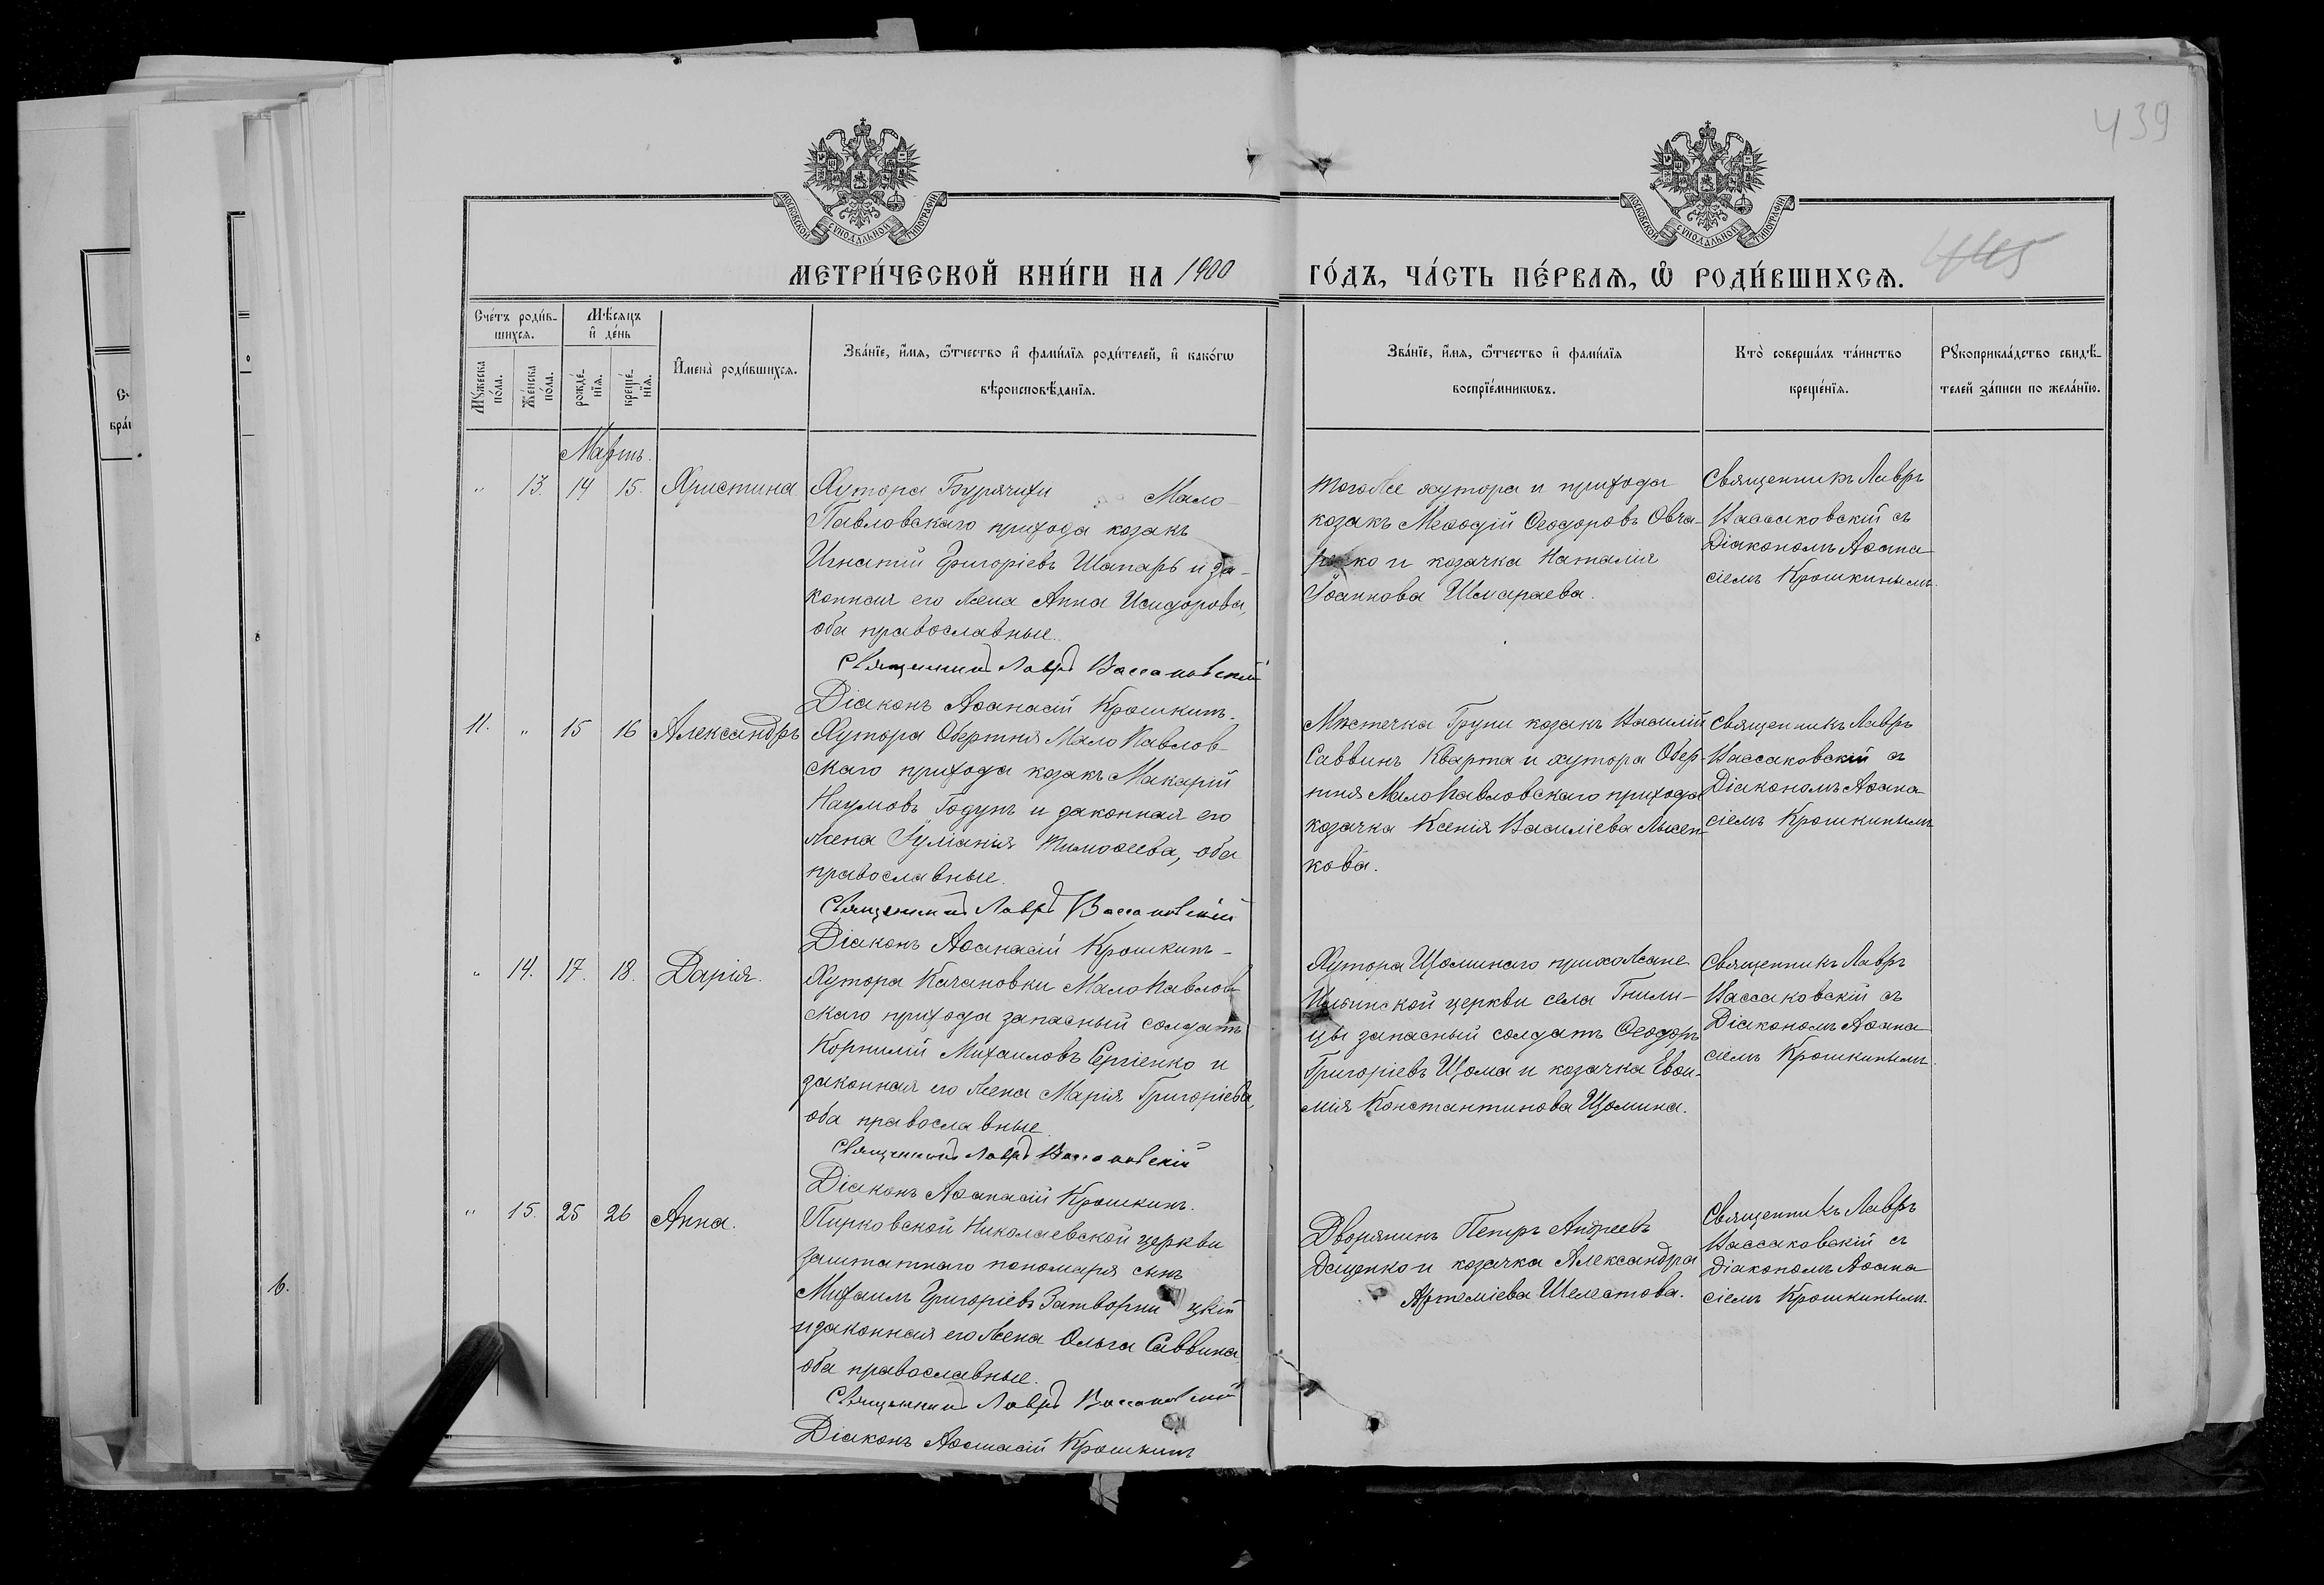 439
445
МОСКОВСКОЙ СѴНОДАЛЬНОЙ ТИПОГРАФІИ
МОСКОВСКОЙ СѴНОДАЛЬНОЙ ТИПОГРАФІИ
МЕТРИ́ЧЕСКОЙ КНИ́ГИ НА 1900 ГО́ДЪ, ЧА́СТЬ ПЕ́РВАѦ, Ѡ҆ РОДИ́ВШИХСѦ.
Сче́тъ роди́в-
шихсѧ.
Мꙋ́жеска
по́ла.
Же́нска
по́ла.
Мѣ́сѧцъ
и҆ де́нь
рожде́-
нїѧ.
креще́-
нїѧ.
И҆мена̀ роди́вшихсѧ.
Зва́нїе, и҆́мѧ, ѻ҆́тчество и҆ фами́лїѧ роди́телей, и҆ како́гѡ
вѣроисповѣ́данїѧ.
Зва́нїе, и҆́мѧ, ѻ҆́тчество и҆ фами́лїѧ
воспрїе́мникѡвъ.
Кто̀ соверша́лъ та́инство
креще́нїѧ.
Рꙋкоприкла́дство свидѣ́-
телей за́писи по жела́нїю.
Мартъ.
" 13. 14 15. Христина
Хутора Бурячихи Мало-
Павловскаго прихода козакъ
Игнатій Григоріевъ Шапарь и за-
конная его жена Анна Исидорова,
оба православные.
Священникъ Лавръ Вассаковскій
Діаконъ Аѳанасій Крошкинъ.
тогоже хутора и прихода
козакъ Меѳодій Ѳеодоровъ Овча-
ренко и козачка Наталія
Іоаннова Шмараева.
Священникъ Лавръ
Вассаковскій съ
Діакономъ Аѳана-
сіемъ Крошкинымъ.
11. " 15 16 Александръ
Хутора Обертня МалоПавлов-
скаго прихода козакъ Макарій
Наумовъ Годунъ и законная его
жена Іуліанія Тимоѳеева, оба
православные.
Священникъ Лавръ Вассаковскій
Діаконъ Аѳанасій Крошкинъ-
Мѣстечка Груни козакъ Василій
Саввинъ Кварта и хутора Обер-
тня МалоПавловскаго прихода
козачка Ксенія Василіева Лысен-
кова.
Священникъ Лавръ
Вассаковскій съ
Діакономъ Аѳана-
сіемъ Крошкинымъ
" 14. 17. 18. Дарія.
Хутора Качановки МалоПавлов-
скаго прихода запасный солдатъ
Корнилій Михаиловъ Сергіенко и
законная его жена Марія Григоріева,
оба православные.
Священникъ Лавръ Вассаковскій
Діаконъ Аѳанасій Крошкинъ.
Хутора Щоминаго прихожане
Ильинской церкви села Гнили-
цы запасный солдатъ Ѳеодоръ
Григоріевъ Щома и козачка Евѳи-
мія Константинова Щомина.
Священникъ Лавръ
Вассаковскій съ
Діакономъ Аѳана-
сіемъ Крошкинымъ.
" 15. 25 26 Анна.
Пирковской Николаевской церкви
заштатнаго пономаря сынъ
Михаилъ Григоріевъ Затворницкій
и законная его жена Ольга Саввина,
оба православные.
Священникъ Лавръ Вассаковскій
Діаконъ Аѳанасій Крошкинъ
Дворянинъ Петръ Андреевъ
Даценко и козачка Александра
Артеміева Шелестова.
Священникъ Лавръ
Вассаковскій съ
Діакономъ Аѳана-
сіемъ Крошкинымъ.